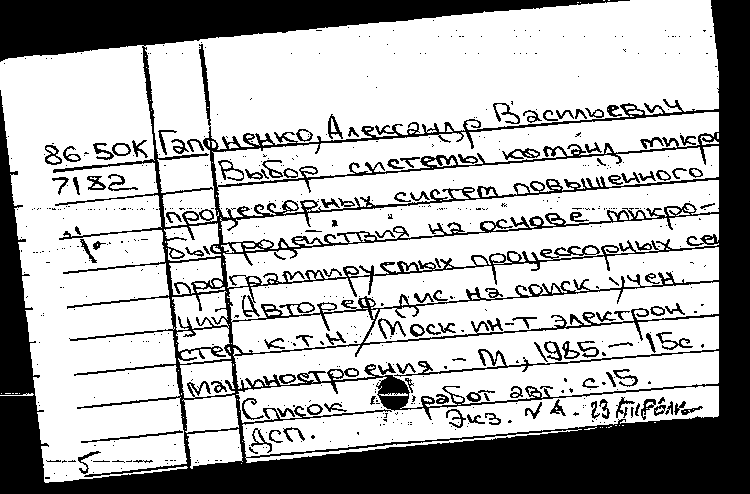 86-50К Гапоненко, Александр Васильевич.
7182 Выбор системы команд микро
процессорных систем повышенного
быстродействия на основе микро-
программируемых процессорных сек
ций. Автореф. дис. на соиск. учен.
степ. к.т.н. / Моск. ин-т электрон.
машиностроения. - М., 1985. - 15с.
Список работ авт.: с.15.
Экз. № 4.
ДСП.
5